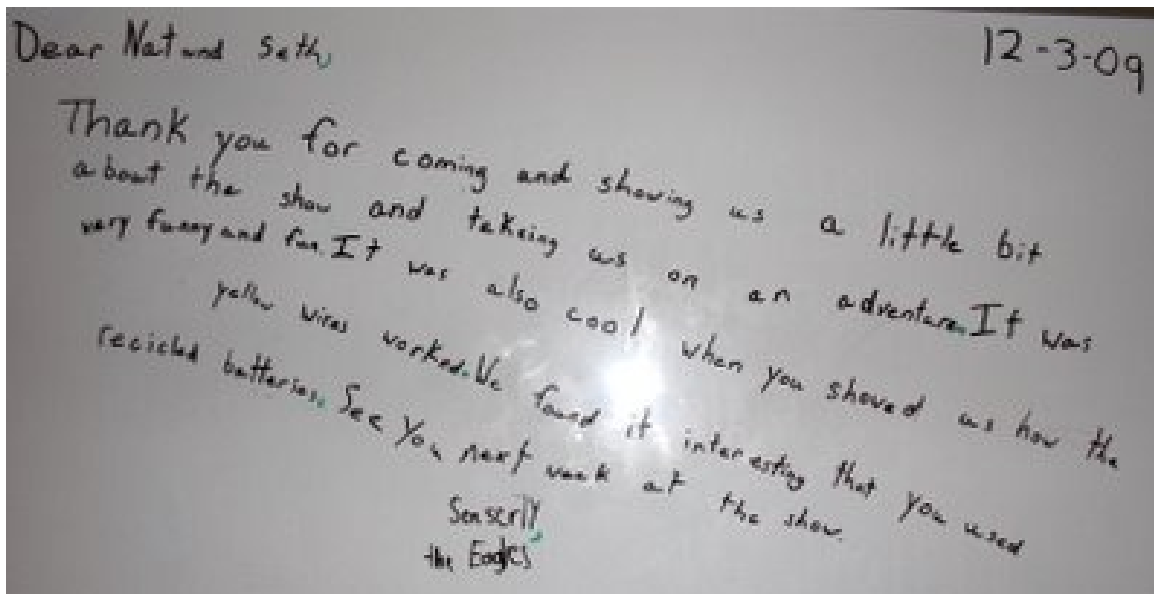 Dear Nat and Seth,
12-3-09
Thank you for coming and showing us a little bit
about the show and takeing us on an adventure. It was
very funny and fun. It was also cool when you showed us how the
yellow wires worked. We found it interesting that you used
recicled batteries. See you next week at the show.
Senserlly,
the Eagles